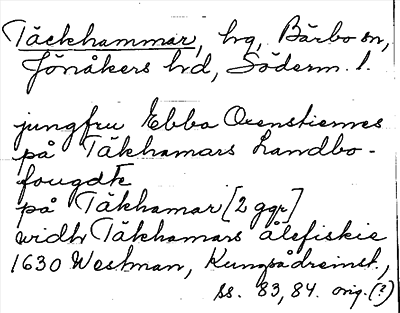 Täckhammar, hg, Bärbo sn,
Jönåkers hd, Söderm. l.
jungfru Ebba Oxenstiernes
på Täkhamars Landbo-
fougdt
på Täkhamar [2 ggr]
widh Täkhamars ålefiskie
1630 Westman, Kungsådreinst.,
ss. 83, 84. orig. (?)